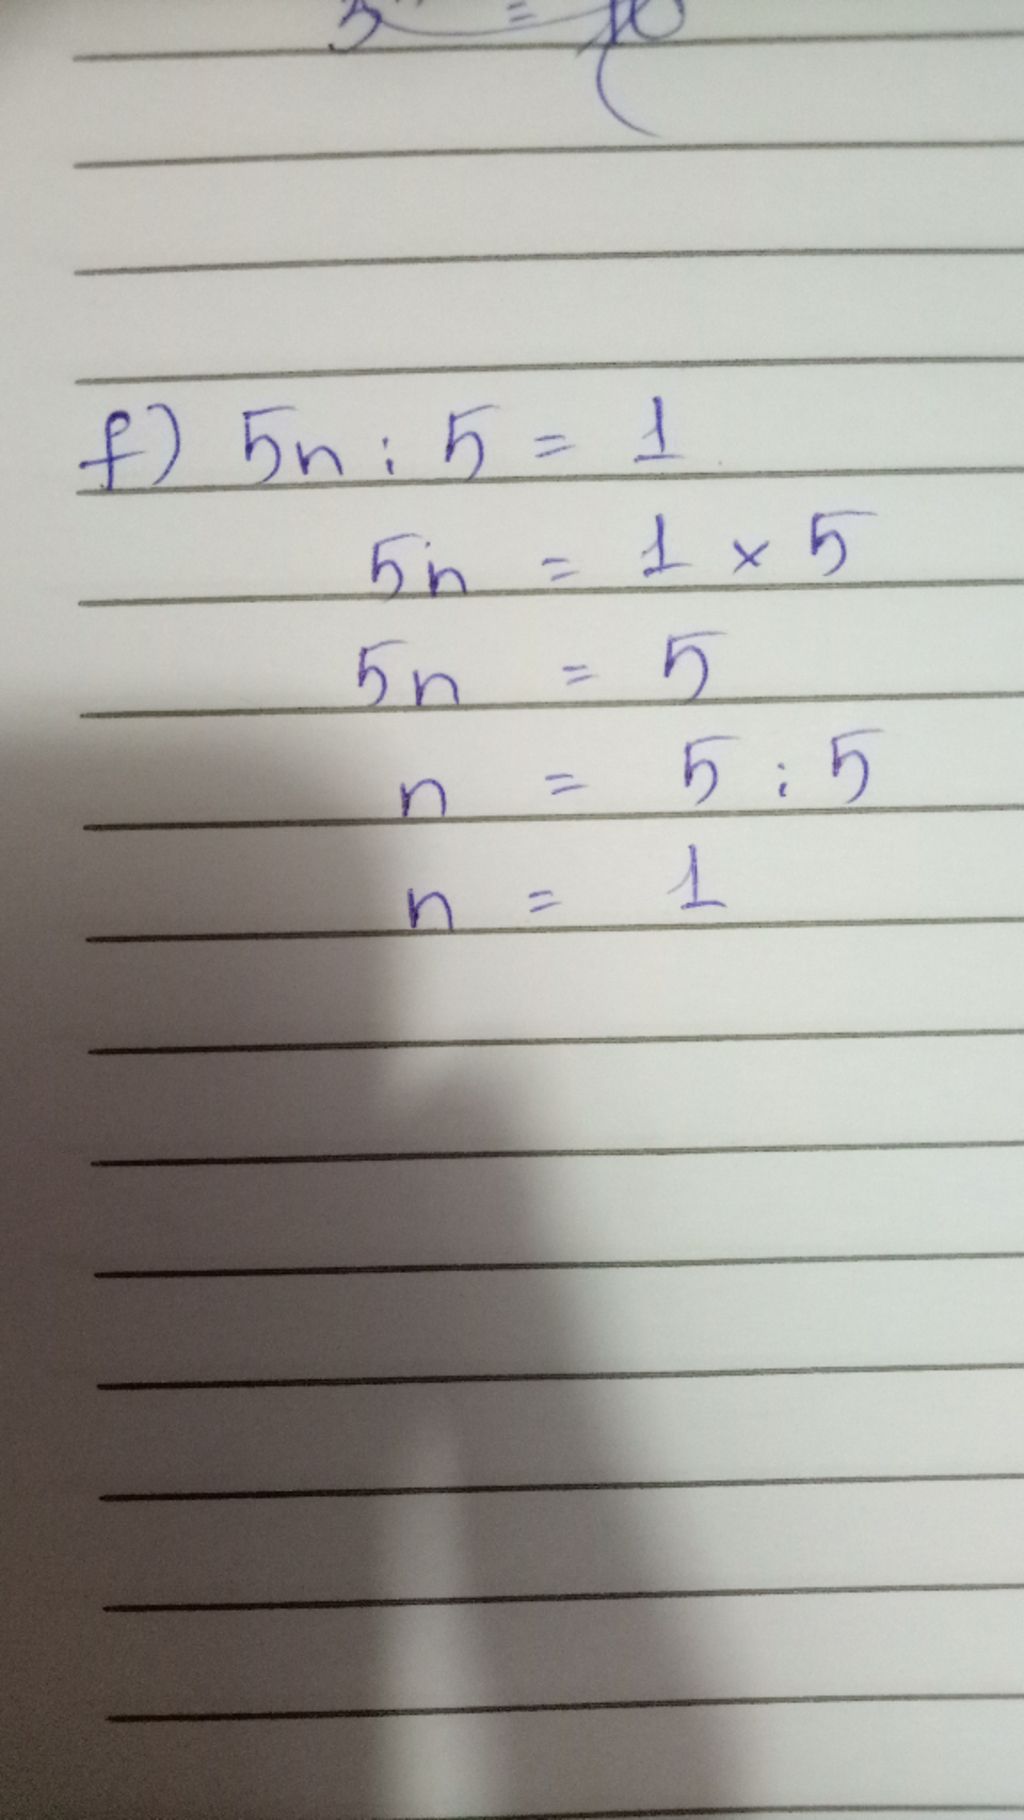 f) 5n : 5 = 1
5n = 1 × 5
5n = 5
n = 5 : 5
n = 1